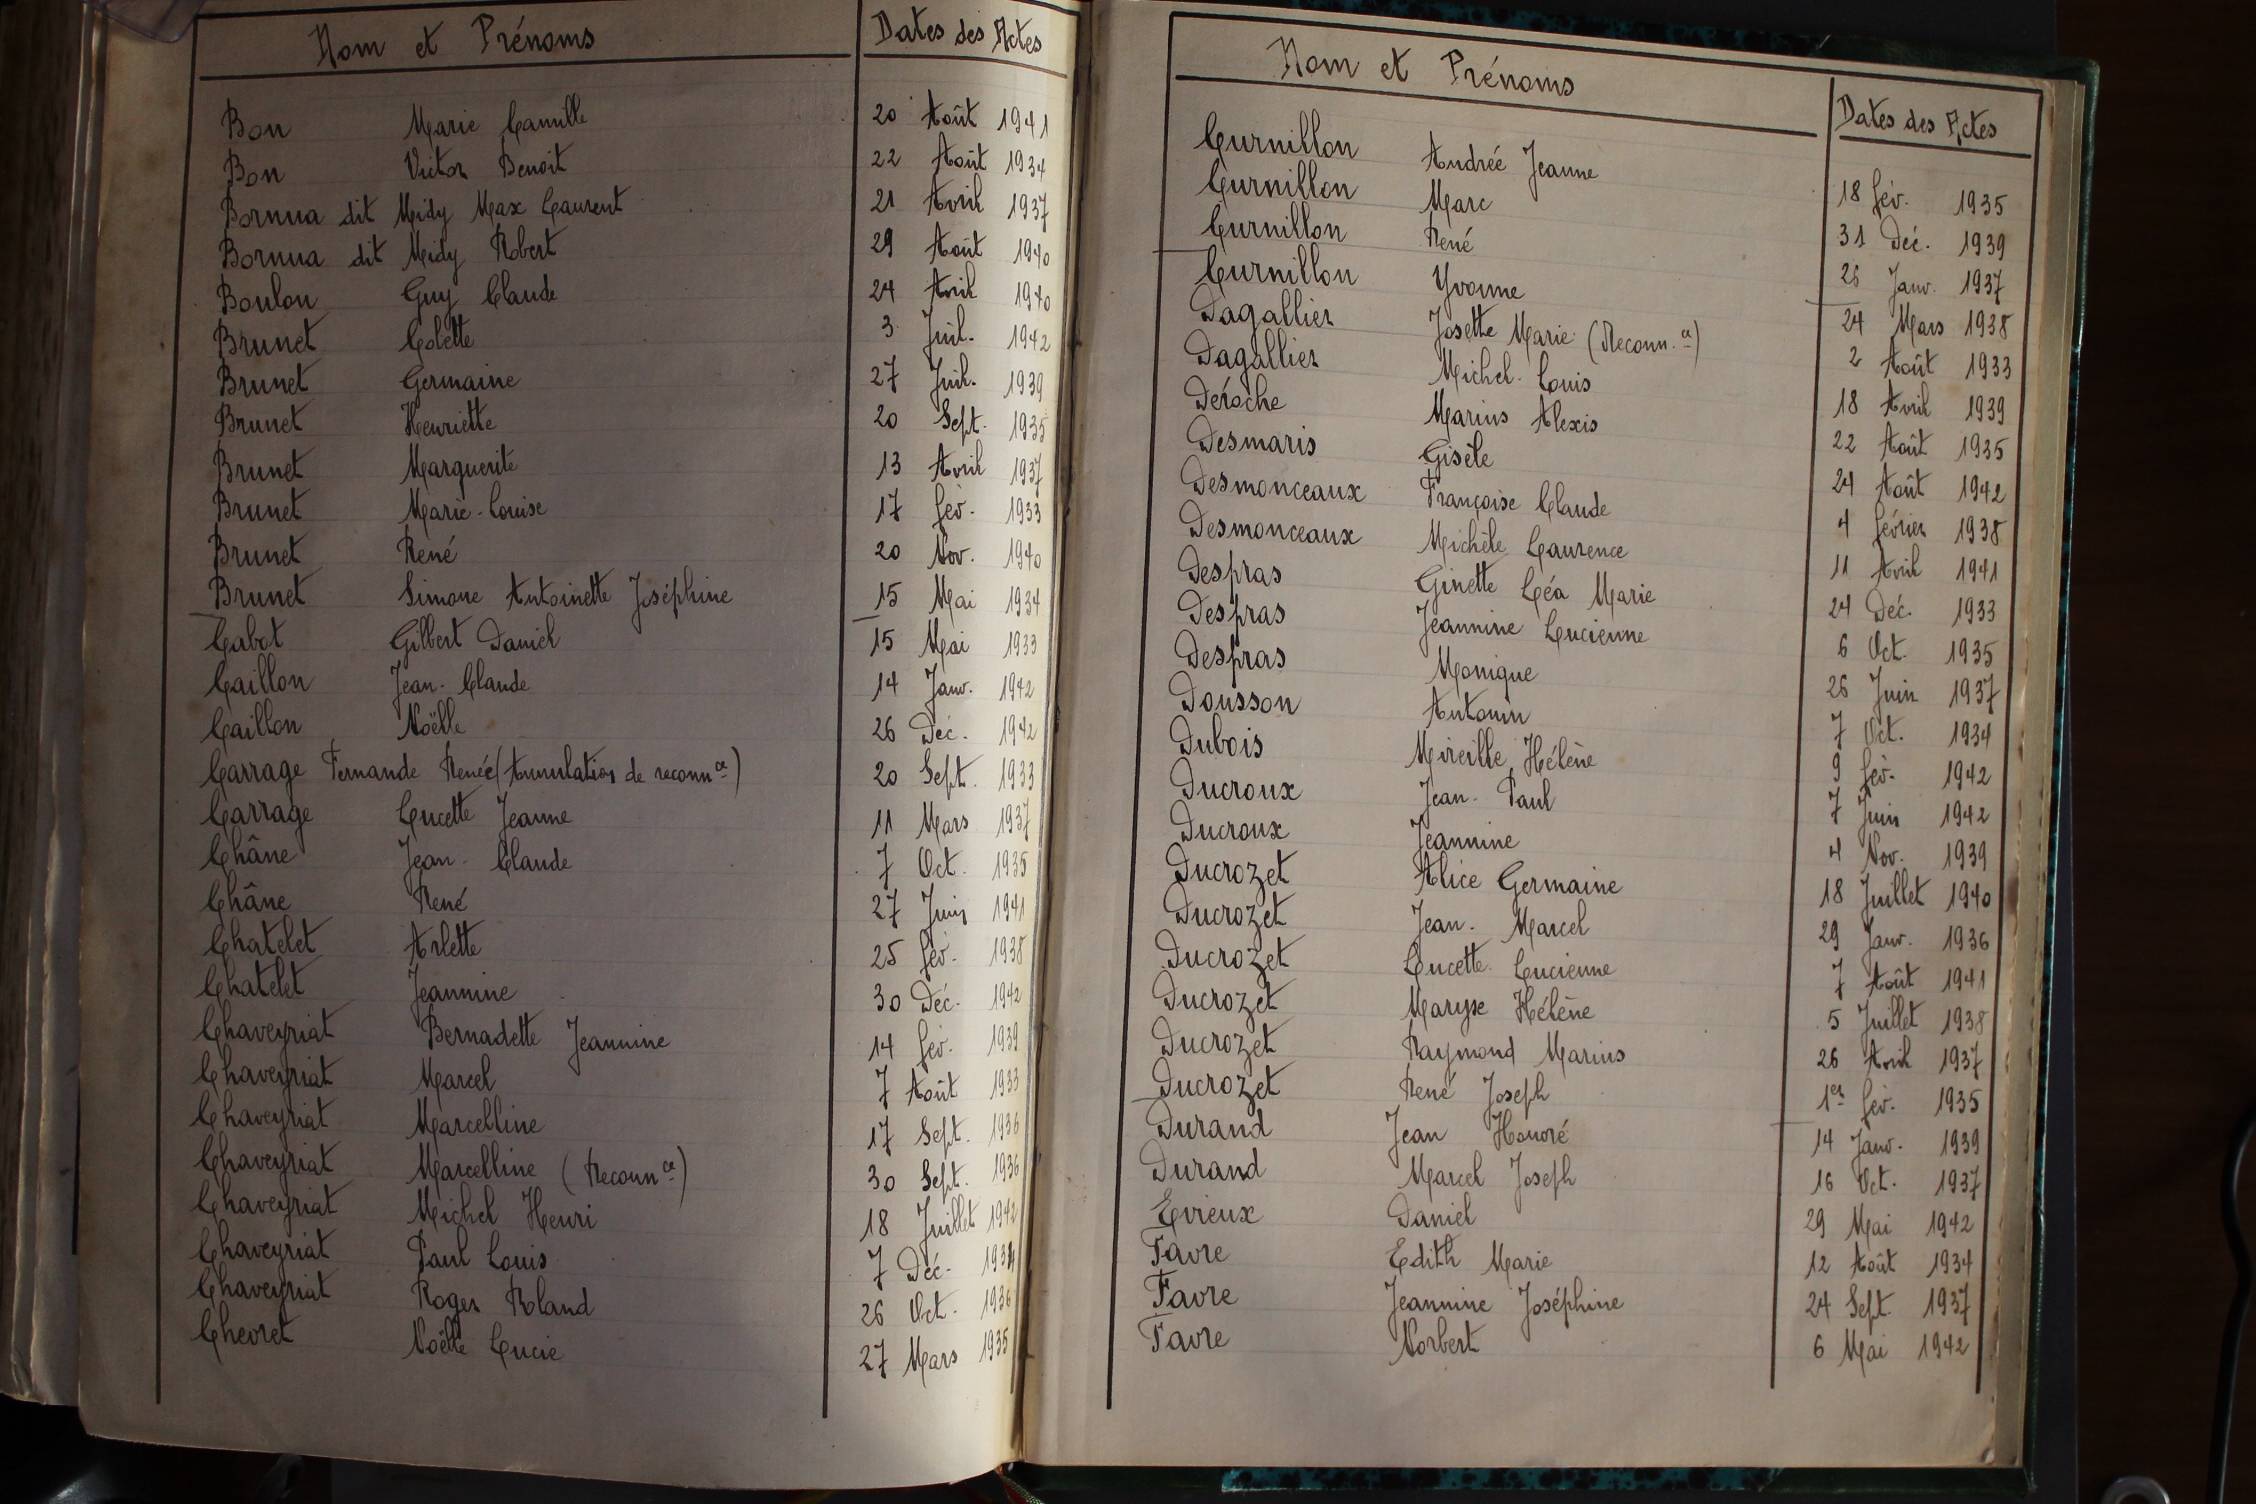 Nom et Prénoms Dates des Actes
Bon Marie Camille 20 Août 1941
Bon Victor Benoit 22 Août 1934
Bornua dit Midy Max Laurent 21 Avril 1937
Bornua dit Midy Robert 29 Août 1940
Boulon Guy Claude 24 Avril 1940
Brunet Colette 3 Juil. 1942
Brunet Germaine 27 Juil. 1939
Brunet Henriette 20 Sept. 1935
Brunet Marguerite 13 Avril 1937
Brunet Marie-Louise 17 fév. 1933
Brunet René 20 Nov. 1940
Brunet Simone Antoinette Joséphine 15 Mai 1934
Cabot Gilbert Daniel 15 Mai 1933
Caillon Jean-Claude 14 Janv. 1942
Caillon Noëlle 26 Déc. 1942
Carrage Fernande Renée (Annulation de reconnce) 20 Sept. 1933
Carrage Lucette Jeanne 11 Mars 1937
Châne Jean-Claude 7 Oct. 1935
Châne René 27 Juin 1941
Chatelet Arlette 25 fév. 1938
Chatelet Jeannine 30 Déc. 1942
Chaveyriat Bernadette Jeannine 14 fév. 1939
Chaveyriat Marcel 7 Août 1933
Chaveyriat Marcelline 17 Sept. 1936
Chaveyriat Marcelline (Reconnce) 30 Sept. 1936
Chaveyriat Michel Henri 18 Juillet 1942
Chaveyriat Paul Louis 7 Déc. 1934
Chaveyriat Roger Roland 26 Oct. 1936
Chevret Noëlle Lucie 27 Mars 1935
Nom et Prénoms Dates des Actes
Curnillon Andrée Jeanne 18 fév. 1935
Curnillon Marc 31 Déc. 1939
Curnillon René 26 Janv. 1937
Curnillon Yvonne 24 Mars 1938
Dagallier Josette Marie (Reconn.ce) 2 Août 1933
Dagallier Michel-Louis 18 Avril 1939
Déroche Marius Alexis 22 Août 1935
Desmaris Gisèle 24 Août 1942
Desmonceaux Françoise Claude 4 février 1938
Desmonceaux Michèle Laurence 11 Avril 1941
Despras Ginette Léa Marie 24 Déc. 1933
Despras Jeannine Lucienne 6 Oct. 1935
Despras Monique 26 Juin 1937
Dousson Antonin 7 Oct. 1934
Dubois Mireille Hélène 9 fév. 1942
Ducroux Jean-Paul 7 Juin 1942
Ducroux Jeannine 4 Nov. 1939
Ducrozet Alice Germaine 18 Juillet 1940
Ducrozet Jean-Marcel 29 Janv. 1936
Ducrozet Lucette Lucienne 7 Août 1941
Ducrozet Maryse Hélène 5 Juillet 1938
Ducrozet Raymond Marius 26 Avril 1937
Ducrozet René Joseph 1er fév. 1935
Durand Jean Honoré 14 Janv. 1939
Durand Marcel Joseph 16 Oct. 1937
Evieux Daniel 29 Mai 1942
Favre Edith Marie 12 Août 1934
Favre Jeannine Joséphine 24 Sept. 1937
Favre Norbert 6 Mai 1942